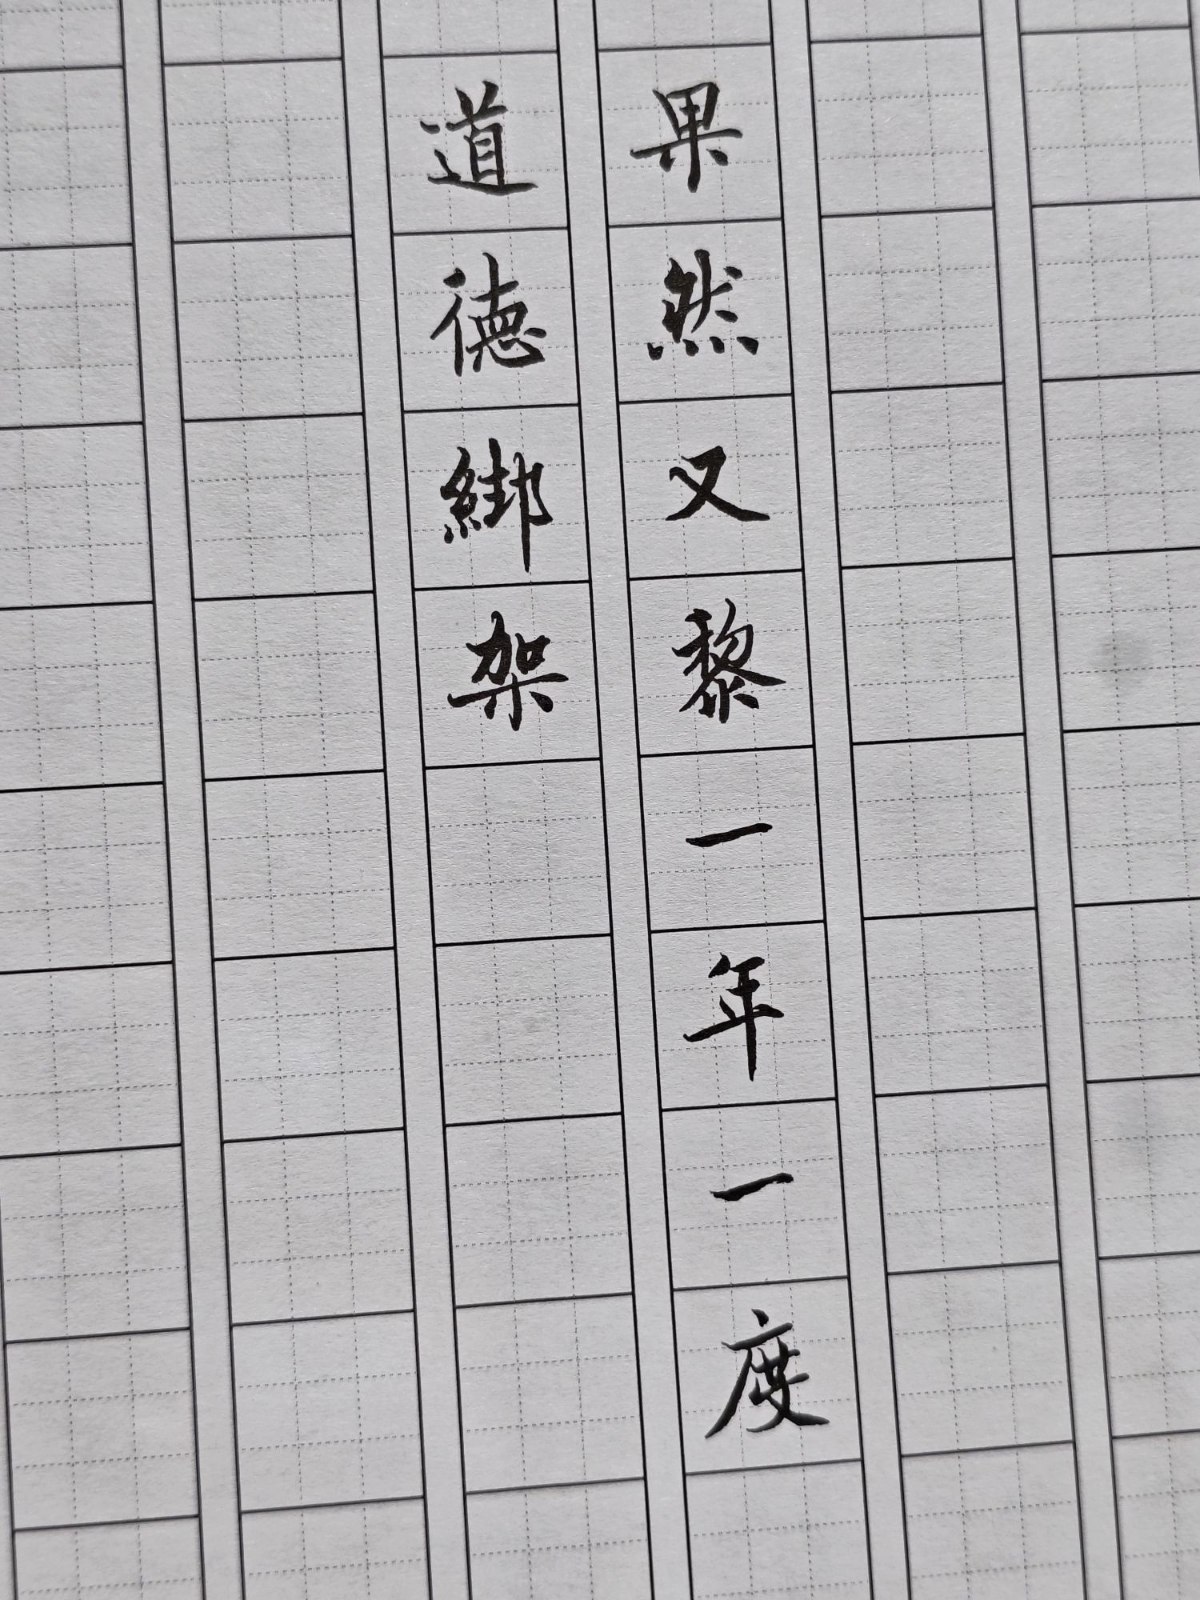 果然又黎一年一度
道德綁架